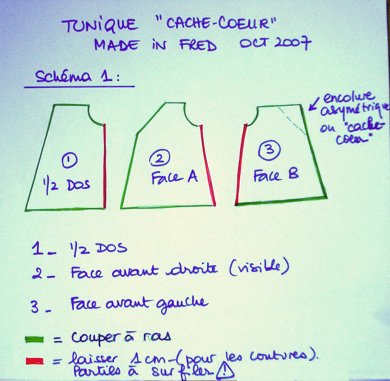 TUNIQUE "CACHE-COEUR"
MADE IN FRED OCT 2007
Schéma 1:
encolure
asymétrique
ou "cache-
coeur"
1
1/2 DOS
2
Face A
3
Face B
1_ 1/2 DOS
2_ Face avant droite (visible)
3_ Face avant gauche
= couper à ras
= laisser 1 cm (pour les coutures).
Parties à surfiler !